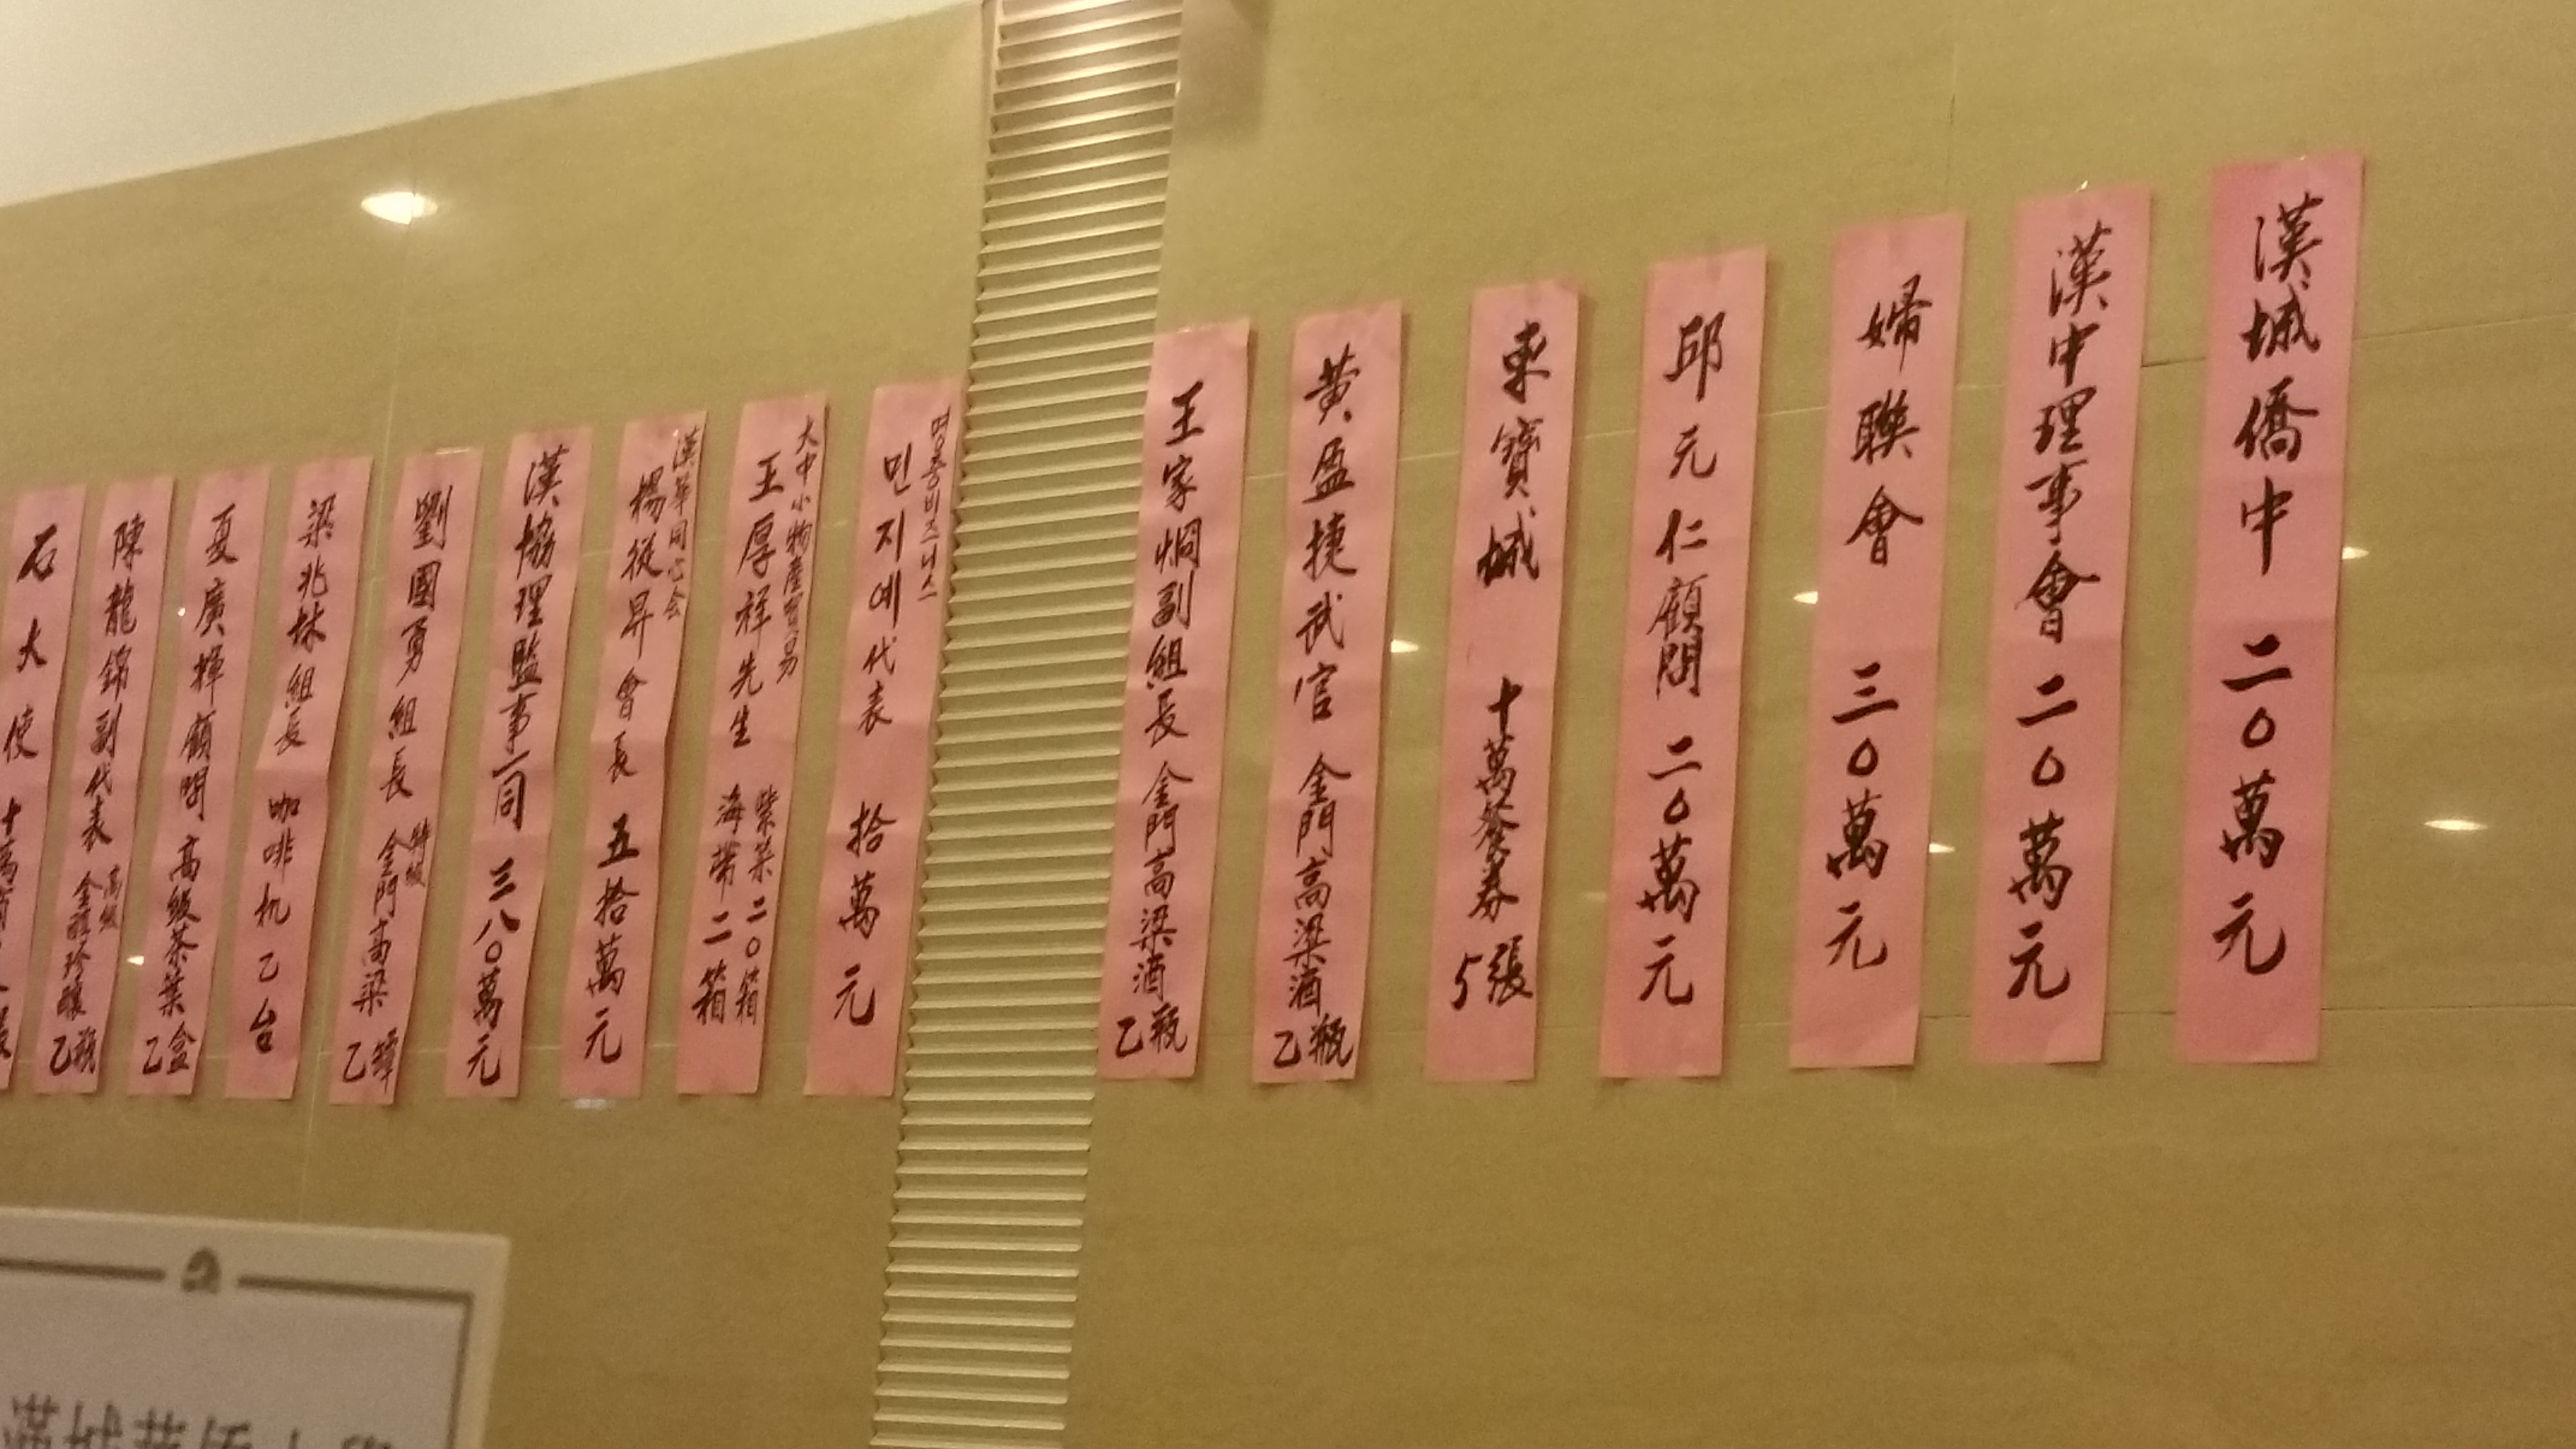 漢城僑中 二0萬元
漢中理事會 二0萬元
婦聯會 三0萬元
邱元仁顧問 二0萬元
東寶城 十萬餐券5張
黃盈捷武官 金門高粱酒乙瓶
王家炯副組長 金門高梁酒乙瓶
명동비즈니스
민지예代表 拾萬元
大中小物產貿易
王厚祥先生 紫菜二0箱
海帶二箱
漢華同心会
楊從昇會長 五拾萬元
漢協理監事一同 三八0萬元
劉國勇組長 特級
金門高梁乙罈
梁兆林組長 咖啡机乙台
夏廣輝顧問 高級茶葉乙盒
陳龍錦副代表 高級
乙瓶
石大使 十萬